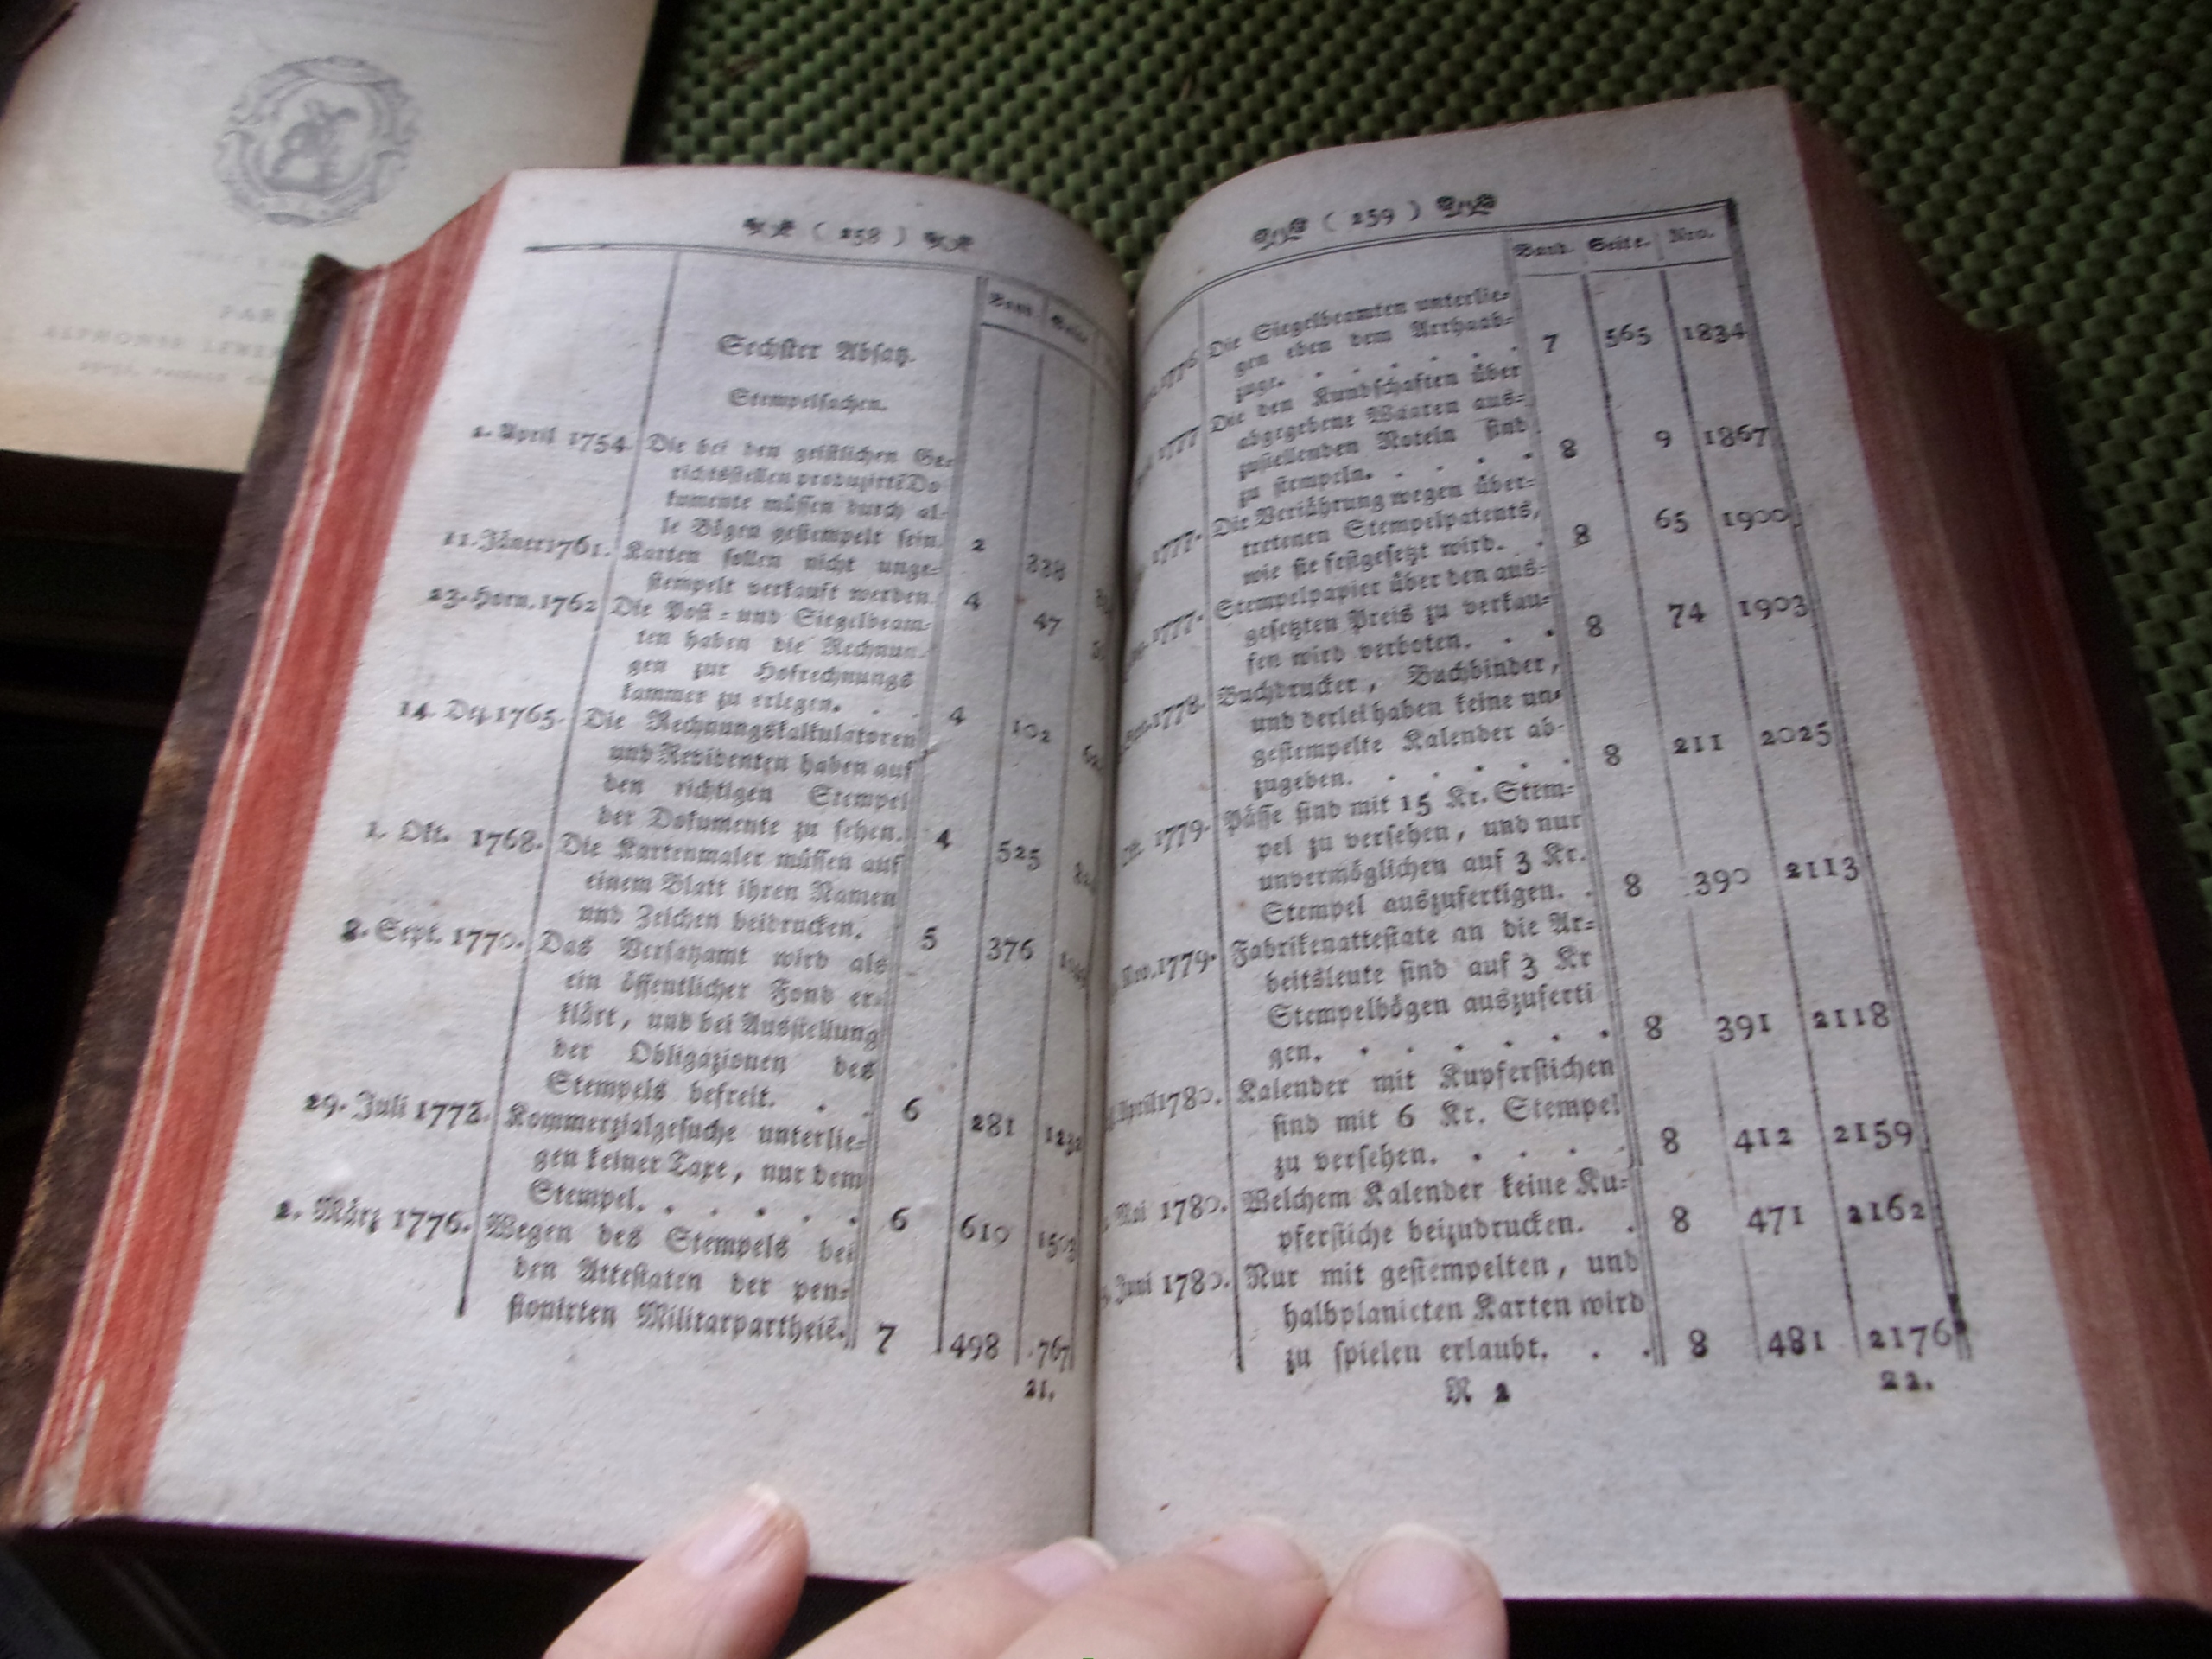 PAR
( 258 )
Band Seite
Sechster Absatz.
Stempelsachen.
1. April 1754. Die bei den geistlichen Ge-
richtsstellen produzirte Do
kumente müssen durch al-
le Bögen gestempelt sein. 2 338
11. Jäner 1761. Karten sollen nicht unge-
stempelt verkauft werden. 4 47
23. Horn. 1762 Die Post- und Siegelbeam-
ten haben die Rechnun-
gen zur Hofrechnungs
kammer zu erlegen. . . 4 102
14. Dez. 1765. Die Rechnungskalkulatoren
und Revidenten haben auf
den richtigen Stempel
der Dokumente zu sehen. 4 525
1. Okt. 1768. Die Kartenmaler müssen auf
einem Blatt ihren Namen
und Zeichen beidrucken. 5 376
Sept. 1770. Das Versatzamt wird als
ein öffentlicher Fond er-
klärt, und bei Ausstellung
der Obligazionen des
Stempels befreit. . . 6 281 1232
29. Juli 1772. Kommerzialgesuche unterlie-
gen keiner Taxe, nur dem
Stempel. . . . . . 6 610 1503
2. März 1776. Wegen des Stempels bei
den Attestaten der pen-
sionirten Militarpartheis. 7 498 767
21.
( 259 )
Band. Seite. Nro.
1776 Die Siegelbeamten unterlie-
gen eben dem Arrhaab-
zuge. . . . . . . 7 565 1834
1777 Die den Kundschaften über
abgegebene Waaren aus-
zustellenden Noteln sind
zu stempeln. . . . . 8 9 1867
1777. Die Verjährung wegen über-
tretenen Stempelpatents,
wie sie festgesetzt wird. . 8 65 1900
1777. Stempelpapier über den aus-
gesetzten Preis zu verkau-
fen wird verboten. . . 8 74 1903
1778. Buchdrucker, Buchbinder,
und derlei haben keine un-
gestempelte Kalender ab-
zugeben. . . . . . 8 211 2025
Okt. 1779. Pässe sind mit 15 Kr. Stem-
pel zu versehen, und nur
unvermöglichen auf 3 Kr.
Stempel auszufertigen. . 8 390 2113
Nov. 1779. Fabrikenattestate an die Ar-
beitsleute sind auf 3 Kr
Stempelbögen auszuferti
gen. . . . . . . 8 391 2118
April 1780. Kalender mit Kupferstichen
sind mit 6 Kr. Stempel
zu versehen. . . . . 8 412 2159
Mai 1780. Welchem Kalender keine Ku-
pferstiche beizudrucken. . 8 471 2162
Juni 1780. Nur mit gestempelten, und
halbplanirten Karten wird
zu spielen erlaubt. . . 8 481 2176
R 2 22.